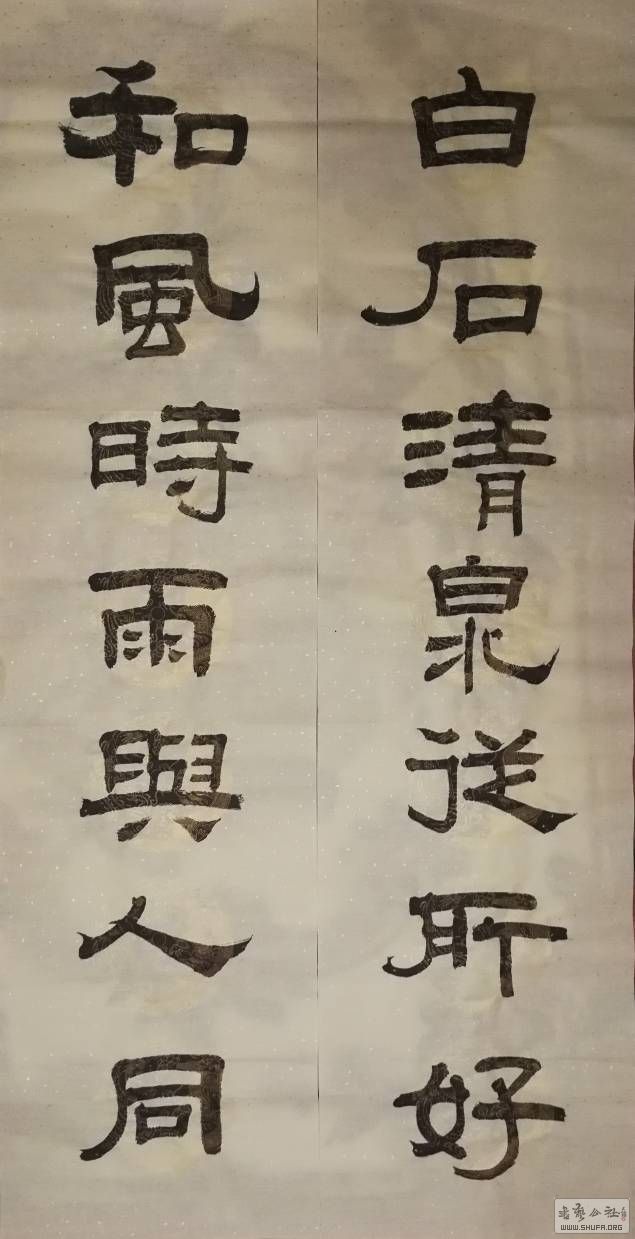 白石清泉從所好
和風時雨與人同
WWW.SHUFA.ORG